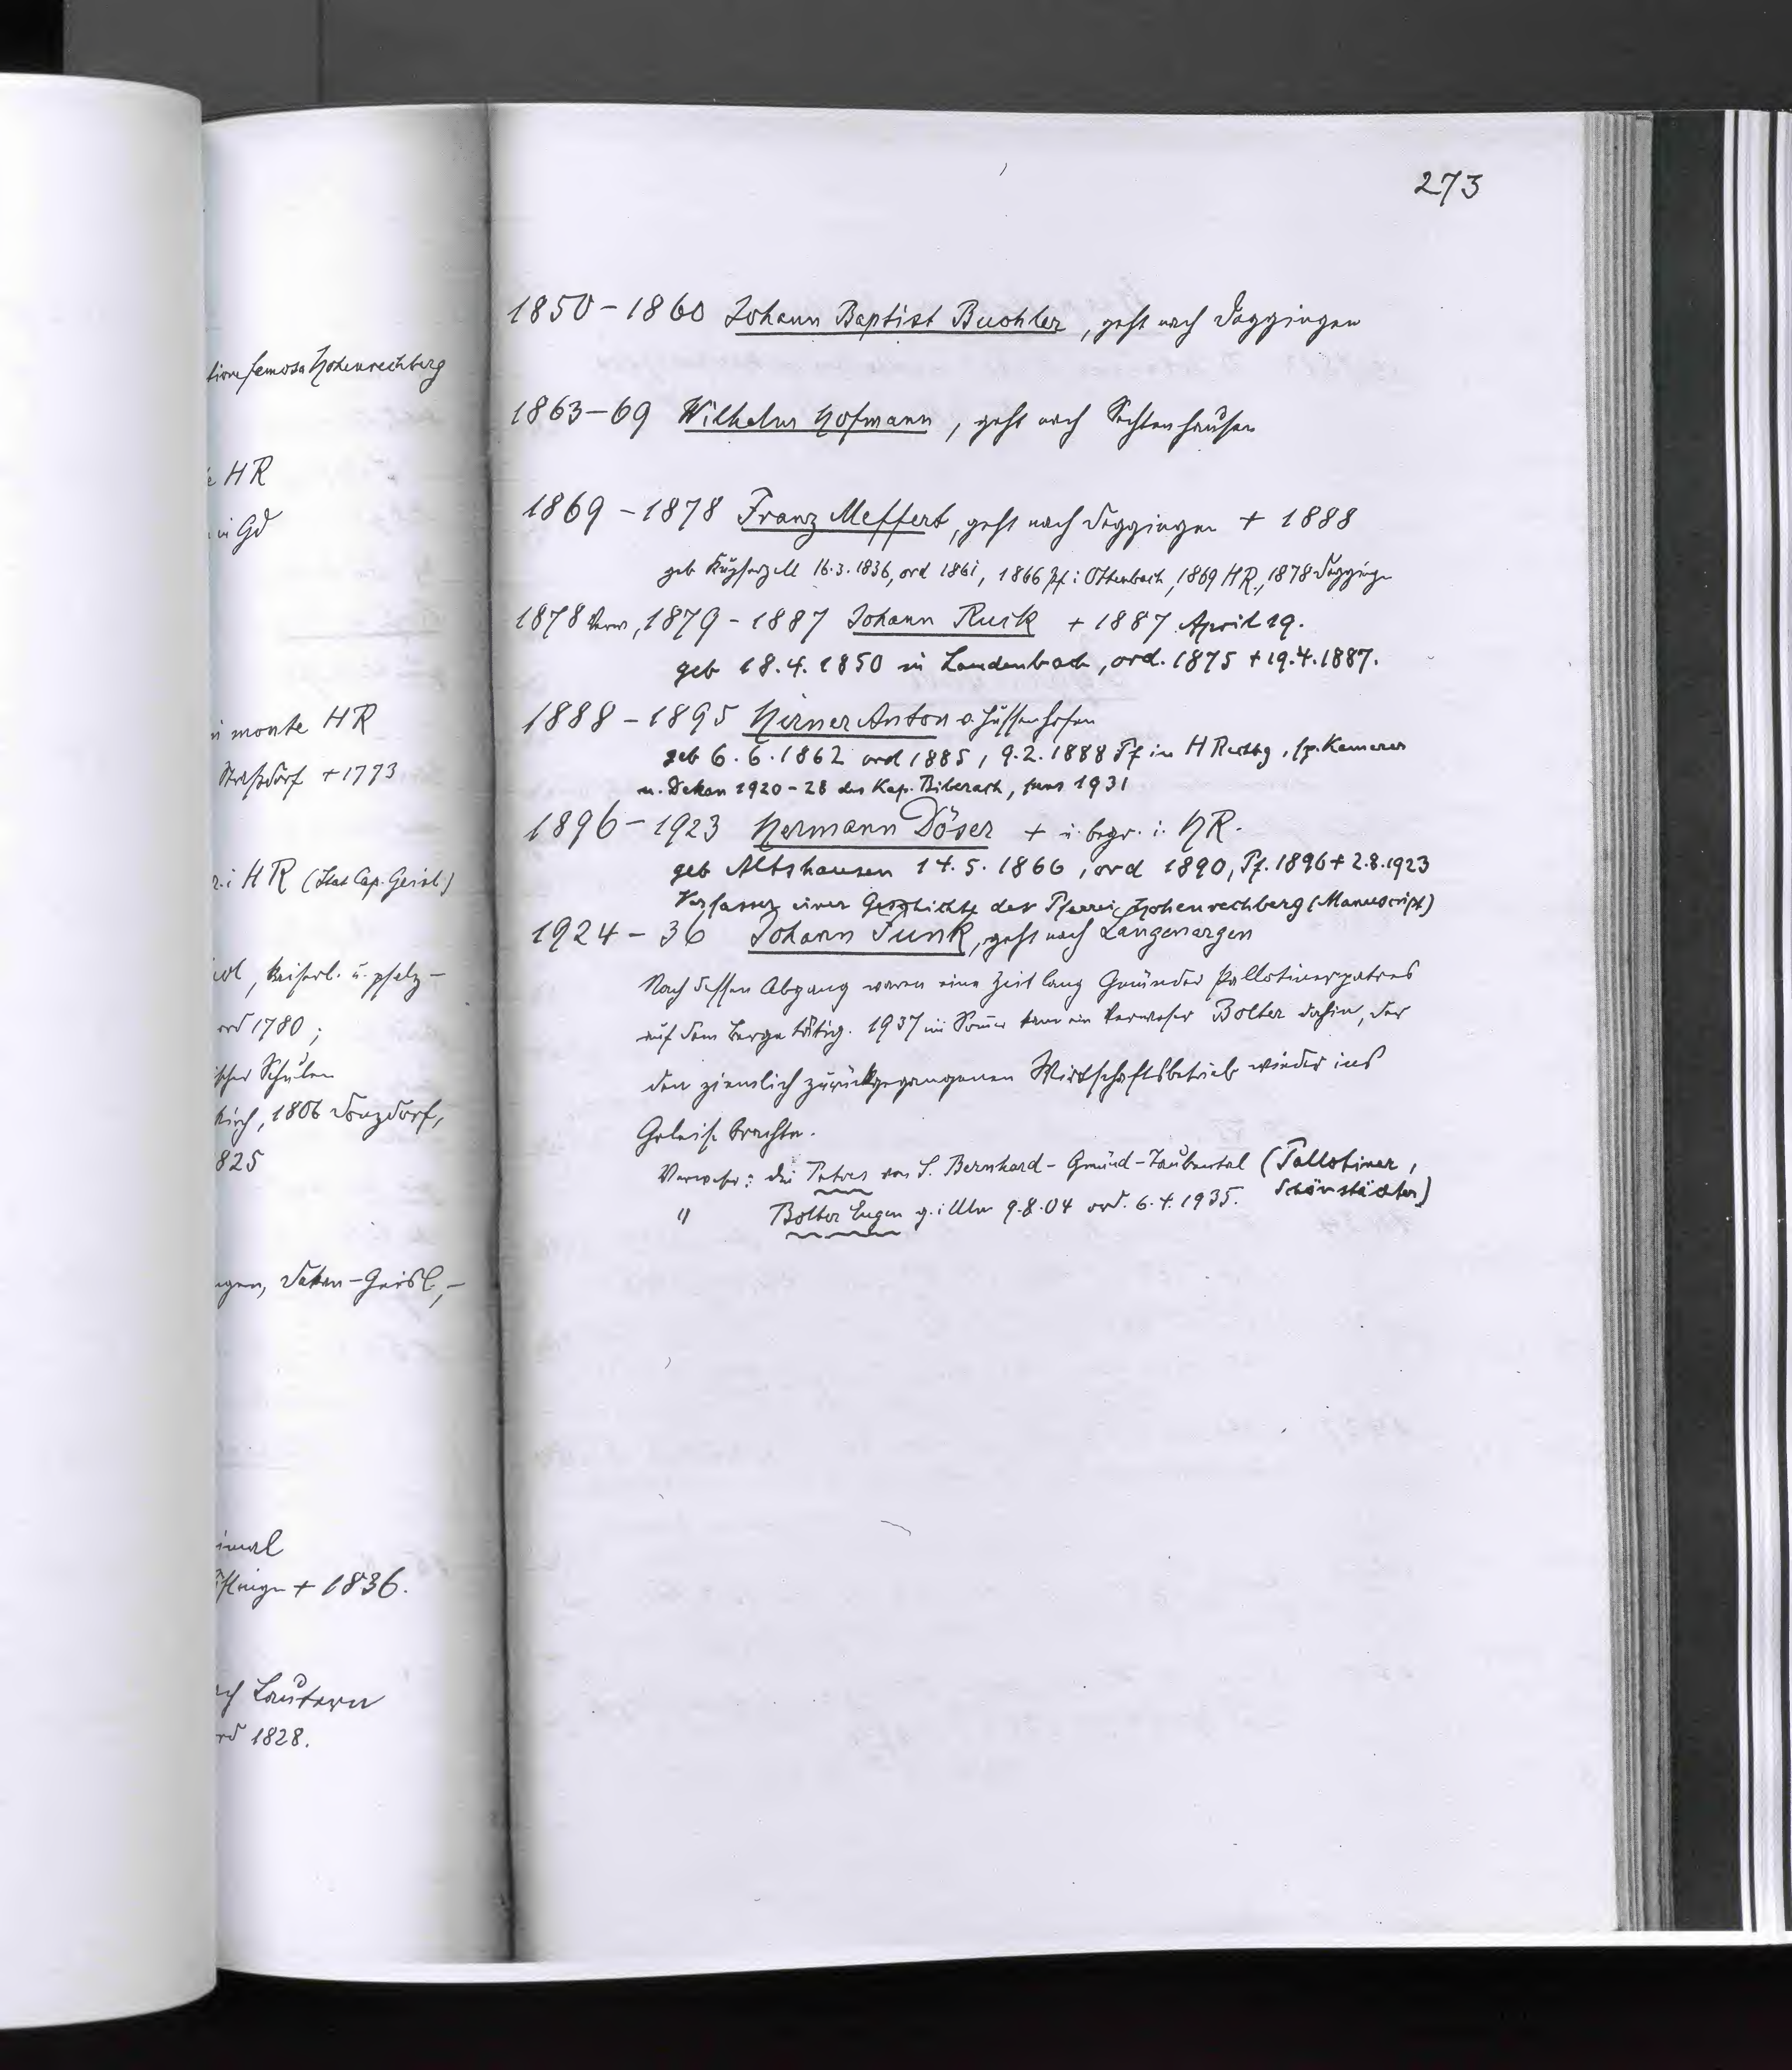 273
1850 - 1860 Johann Baptist Buohler, geht nach Deggingen
1863-69 Wilhelm Hofmann, geht nach Sechtenhausen
1869 - 1878 Franz Meffert, geht nach Deggingen + 1888
geb Kupferzell 16.3.1836, ord 1861, 1866 Pf. i Ottenbach, 1869 HR., 1878 Deggingen
1878 Verw, 1879 - 1887 Johann Ruck + 1887 April 19.
geb 18.4.1850 in Laudenbach, ord. 1875 + 19.4.1887.
1888 - 1895 Hirner Anton v. Hussenhofen
geb 6.6.1862 ord 1885, 9.2.1888 Pf in HRechbg, sp. Kamerer
u. Dekan 1920-28 des Kap. Biberach, pens 1931
1896 - 1923 Hermann Döser + u. begr. i. HR.
geb Altshausen 14.5.1866, ord 1890, Pf. 1896 + 2.8.1923
Verfasser einer Geschichte der Pfarrei Hohenrechberg (Manuscript)
1924 - 36 Johann Funk, geht nach Langenargen
Nach dessen Abgang waren eine Zeit lang Gmünder Pallotinerpatres
auf dem Berge tätig. 1937 im Somer kam ein Verweser Bolter dahin, der
den ziemlich zurückgegangenen Wirtschaftsbetrieb wieder ins
Geleise brachte.
Verweser: die Patres von S. Bernhard - Gmünd - Taubental (Pallotiner,
Schönstädter)
" Bolter Eugen g. i Ulm 9.8.04 ord. 6.4.1935.
famosa Hohenrechberg
HR
in Gd
monte HR
Straßdorf + 1773
i HR (Stat Cap. Geisl.)
, kaiserl. u. pfalz-
ord 1780;
Schulen
, 1806 Donzdorf,
825
, Dekan - Geisl,-
+ 1836.
Lautern
1828.